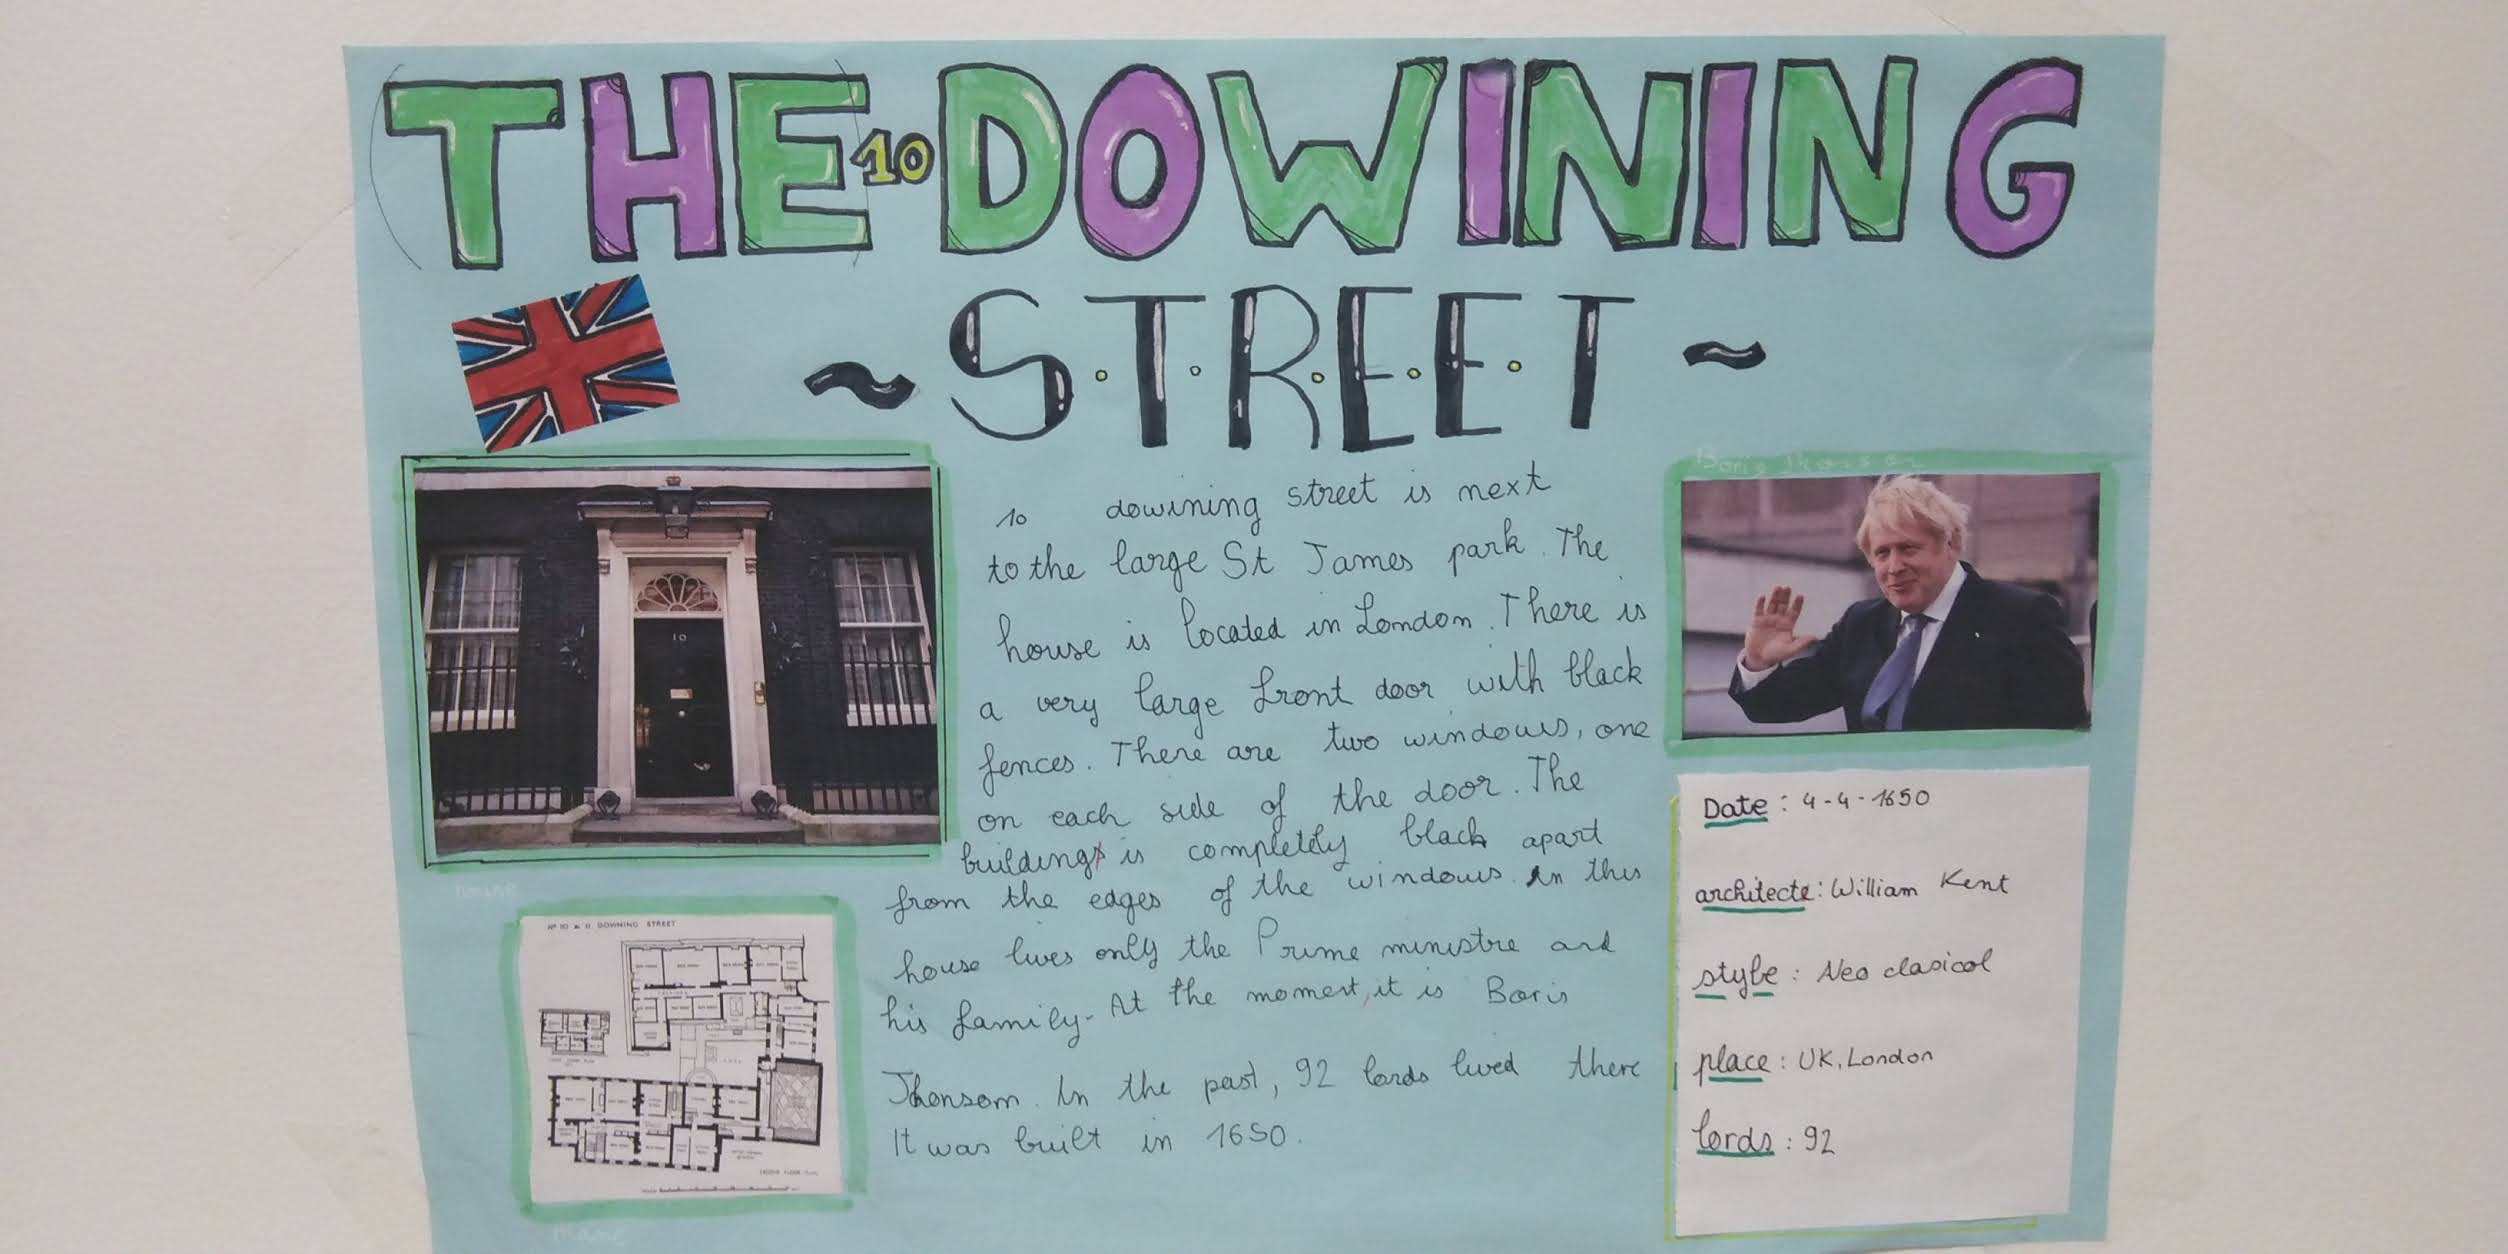 THE 10 DOWINING
~ S.T.R.E.E.T ~
10 dowining street is next
to the large St James park. The
house is located in London. There is
a very large front door with black
fences. There are two windows, one
on each side of the door. The
building is completely black apart
from the edges of the windows. In this
house lives only the Prime ministre and
his family. At the moment, it is Boris
Jhonson. In the past, 92 lords lived there
It was built in 1650.
10
Nº 10 & 11 DOWNING STREET
Boris
Date : 4-4-1650
architecte : William Kent
style : Neo clasical
place : UK, London
lords : 92